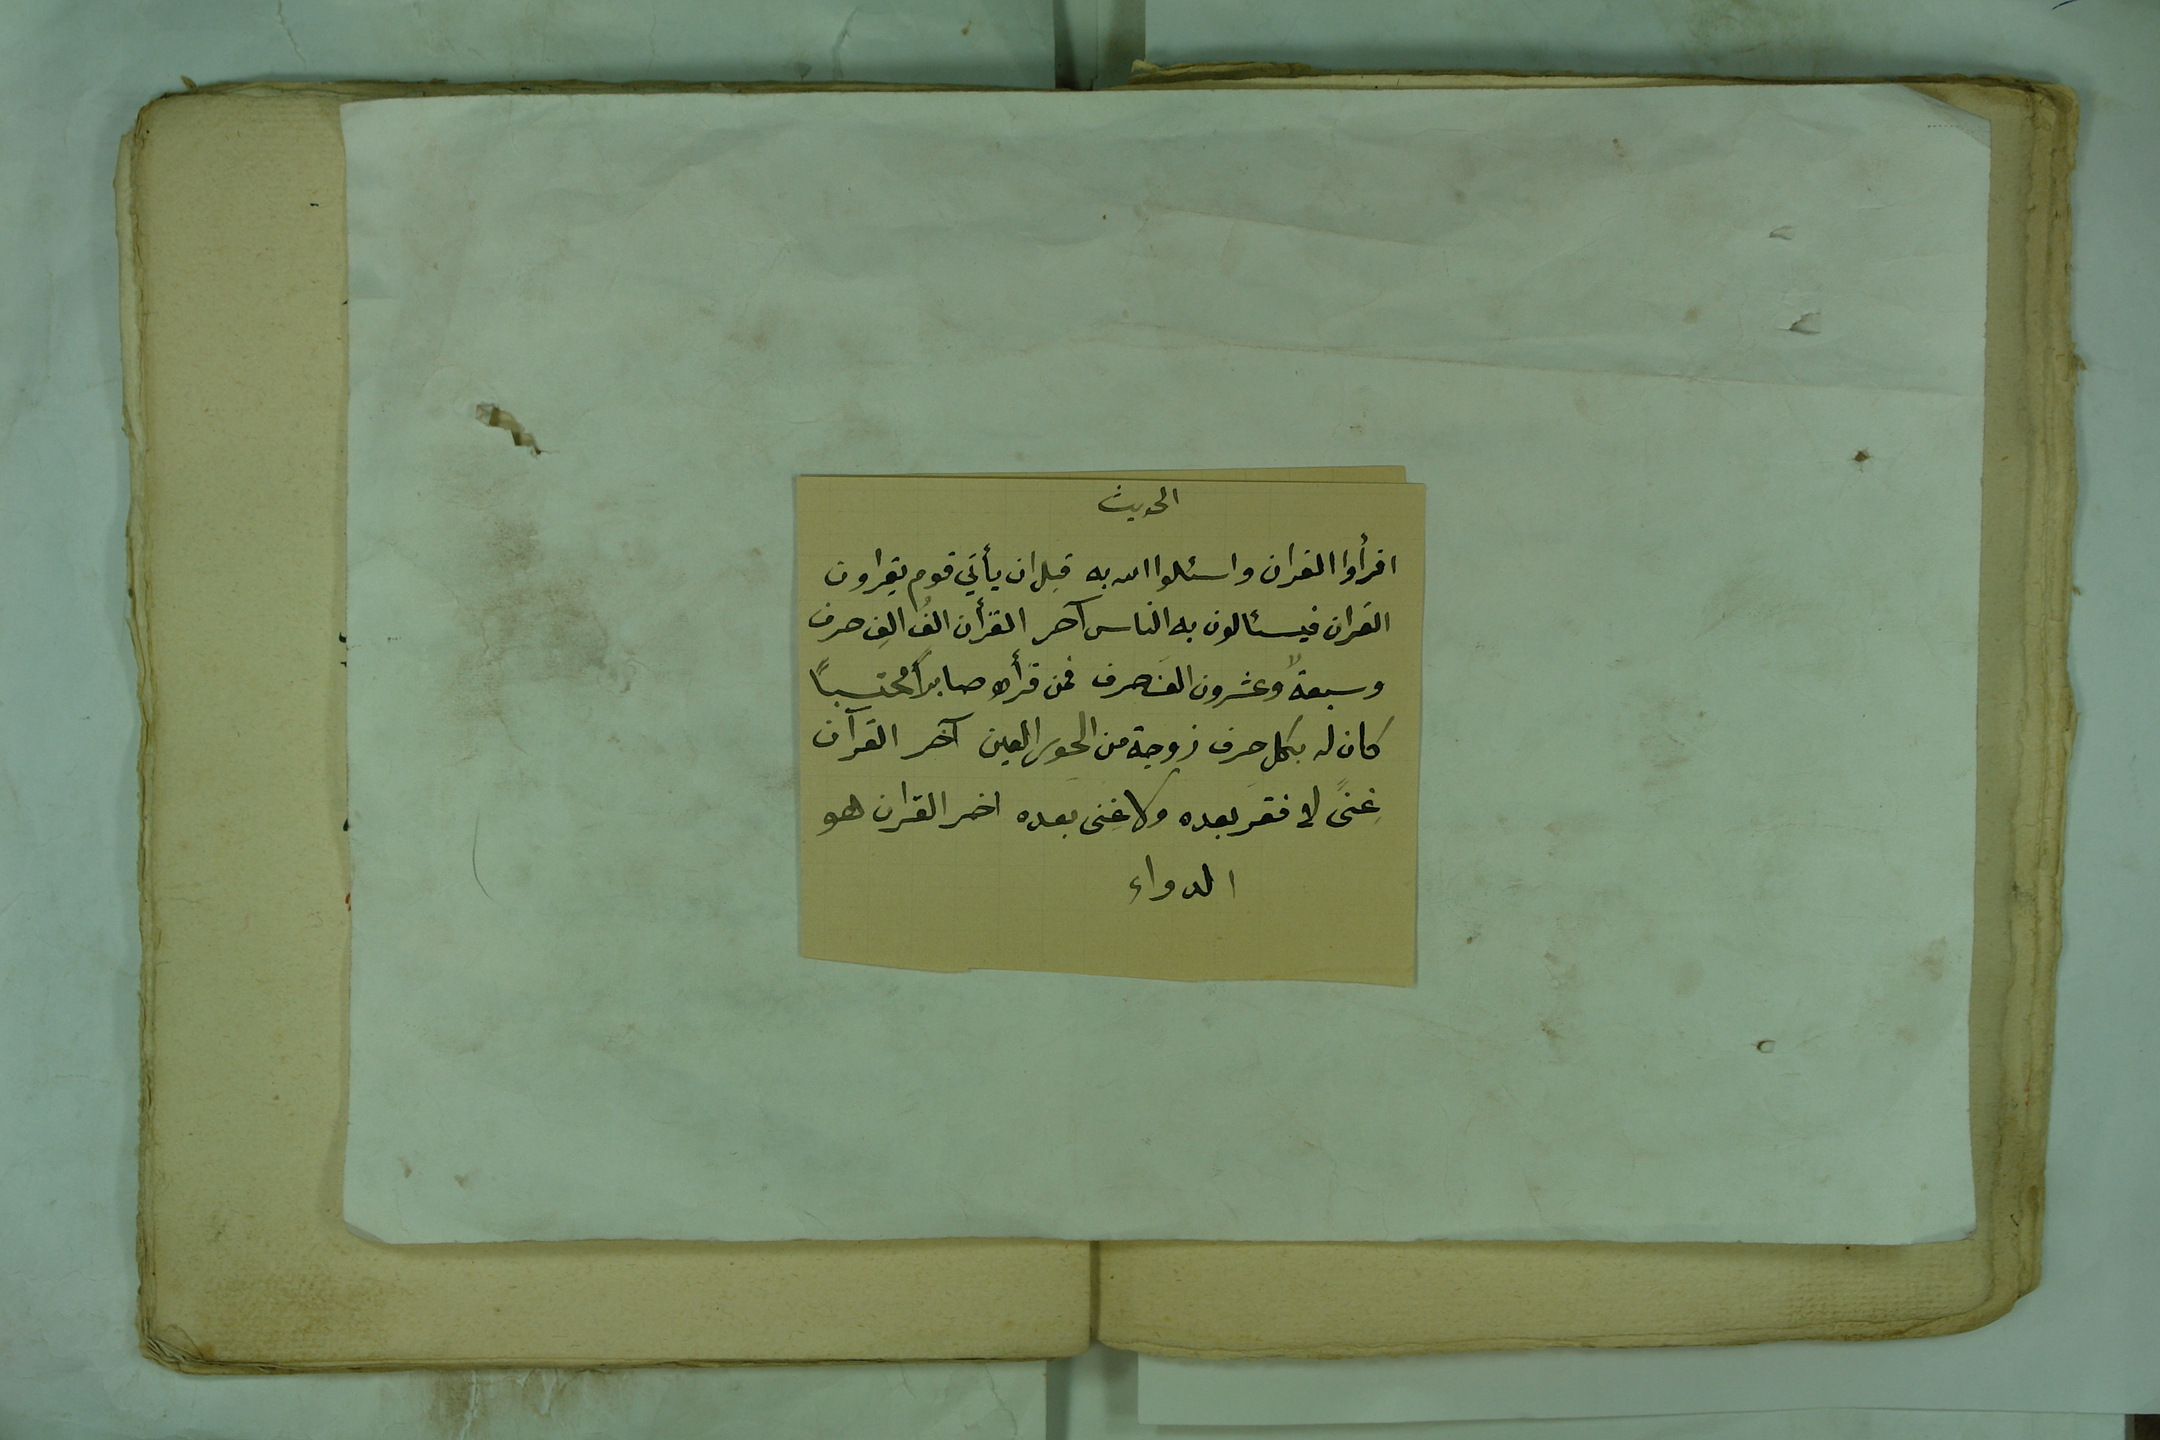 الحديث
اقرأوا القران واسئلوا الله به قبل ان يأتي قوم يقراون
القران فيسئالون به الناس آخر القرأن الفُ الفِ حرف
وسبعةٌ وعشرون الفَ حرف فمن قرأه صابراً محتسباً
كان له بكل حرف زوجة من الحور العين آخر القرآن
غِنىً لا فقرَ بعده ولا غِنى بعده اخر القران هو
الدواء